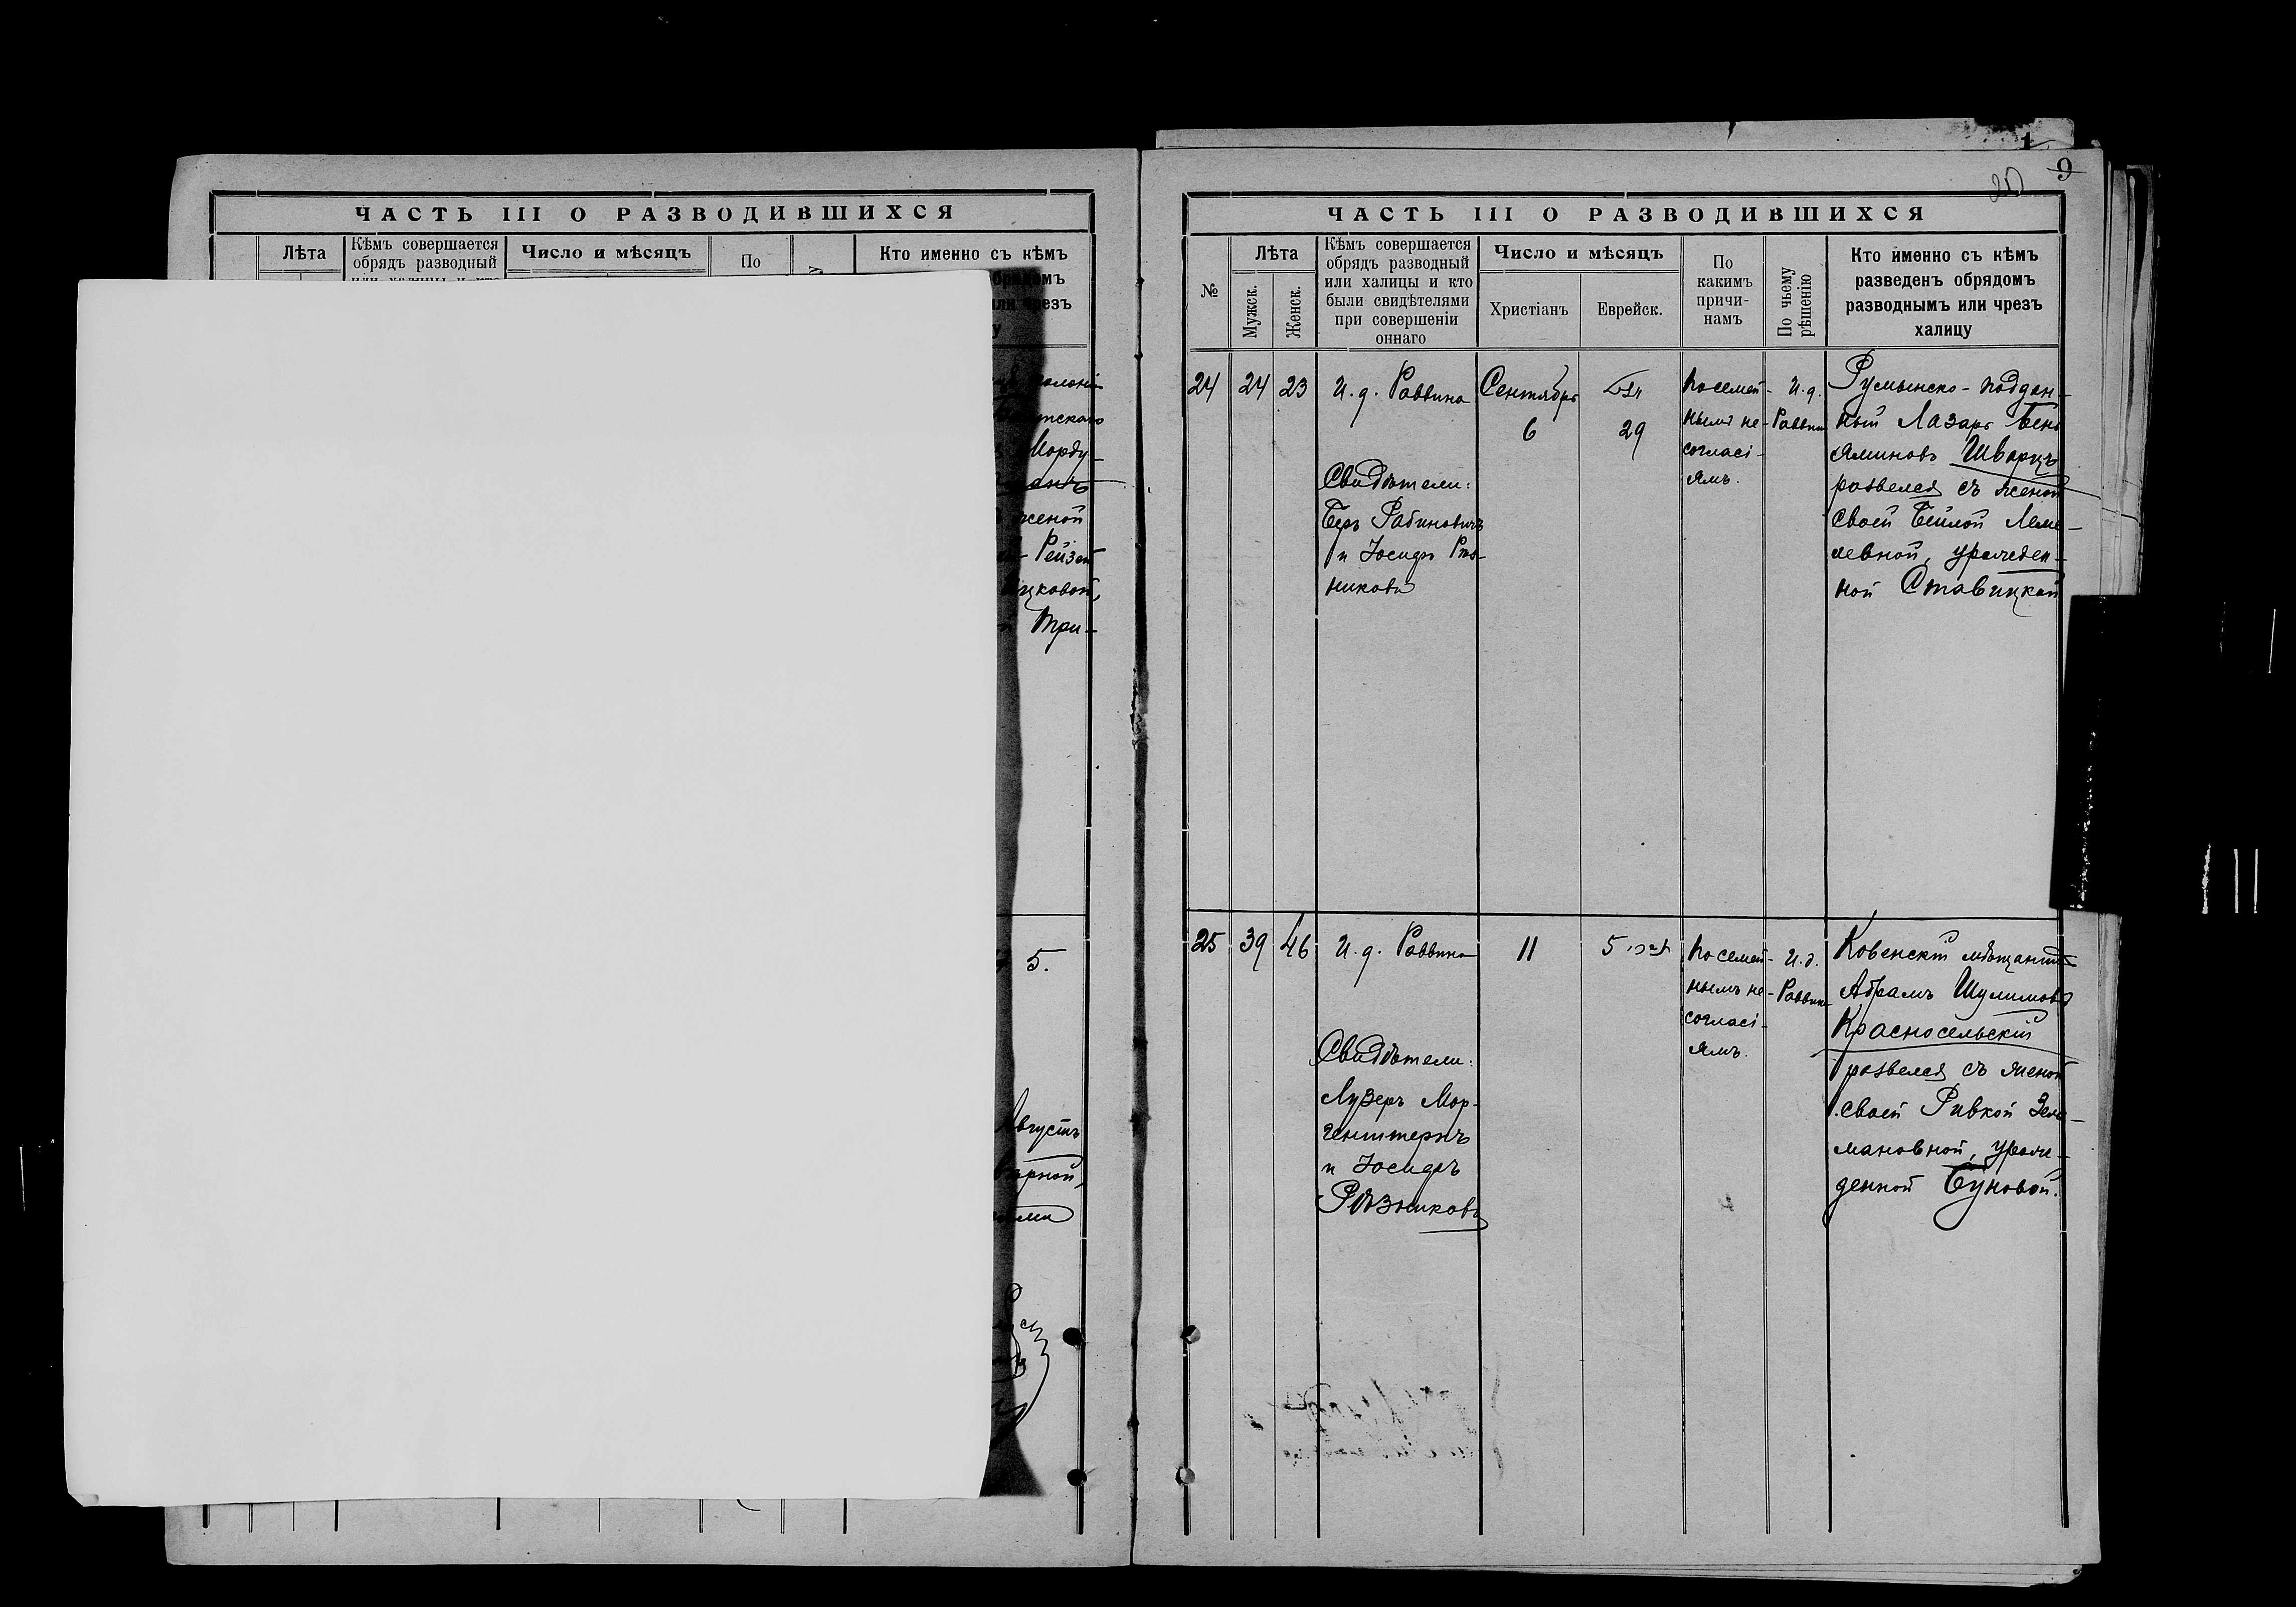 ЧАСТЬ III О РАЗВОДИВШИХСЯ
Лѣта
Кѣмъ совершается
обрядъ разводный
Число и мѣсяцъ
По
Кто именно съ кѣмъ
Морду-
женой
Рейзей
5.
Августъ
9
ЧАСТЬ III О РАЗВОДИВШИХСЯ
№
Лѣта
Мужск.
Женск.
Кѣмъ совершается
обрядъ разводный
или халицы и кто
были свидѣтелями
при совершеніи
оннаго
Число и мѣсяцъ
Христіанъ
Еврейск.
По
какимъ
причи-
намъ
По чьему
рѣшенію
Кто именно съ кѣмъ
разведенъ обрядомъ
разводнымъ или чрезъ
халицу
24
24
23
И. д. Раввина
Свидѣтели:
Беръ Рабиновичъ
и Іосифъ Рѣз-
никовъ
Сентябрь
6
29
По семей-
нымъ не-
согласі-
ямъ.
И. д.
Раввина
Румынско-поддан-
ный Лазарь Бень
яминовъ Шварцъ
развелся съ женой
своей Бейлой Леме-
левной, урожден-
ной Ставицкой
25
39
46
И. д. Раввина
Свидѣтели:
Лузеръ Мор-
генштернъ
и Іосифъ
Рѣзниковъ
11
5 תשרי
По семей-
нымъ не-
согласі-
ямъ.
И. д.
Раввина
Ковенскій мѣщанинъ
Абрамъ Шулимовъ
Красносельскій
развелся съ женой
своей Ривкой Зель-
мановной, урож-
денной Буновой.